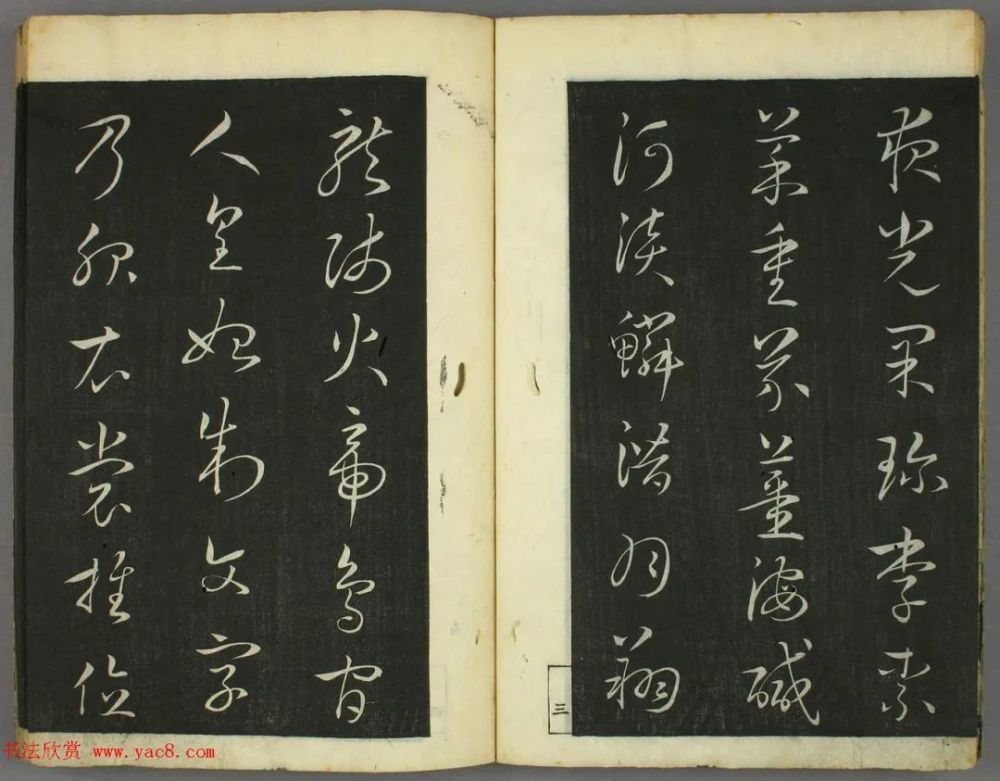 夜光果珍李柰
菜重芥薑海醎
河淡鱗潛羽翔
龍師火帝鳥官
人皇始制文字
乃服衣裳推位
三
书法欣赏 www.yac8.com